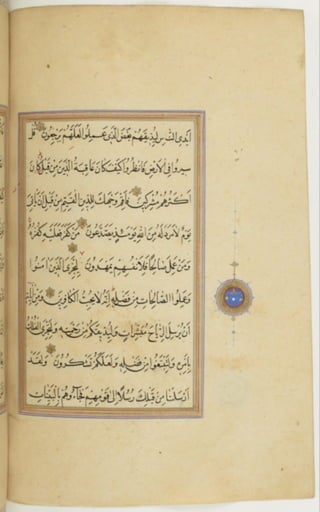 أيدي الناس ليذيقهم بعض الذي عملوا لعلهم يرجعون قل
سيروا في الأرض فانظروا كيف كان عاقبة الذين من قبل كان
أكثرهم مشركين فأقم وجهك للدين القيم من قبل أن يأتي
يوم لا مرد له من الله يومئذ يصدعون من كفر فعليه كفره
ومن عمل صالحا فلأنفسهم يمهدون ليجزي الذين آمنوا
وعملوا الصالحات من فضله إنه لا يحب الكافرين ومن آياته
أن يرسل الرياح مبشرات وليذيقكم من رحمته ولتجري الفلك
بأمره ولتبتغوا من فضله ولعلكم تشكرون ولقد
أرسلنا من قبلك رسلا إلى قومهم فجاءوهم بالبينات